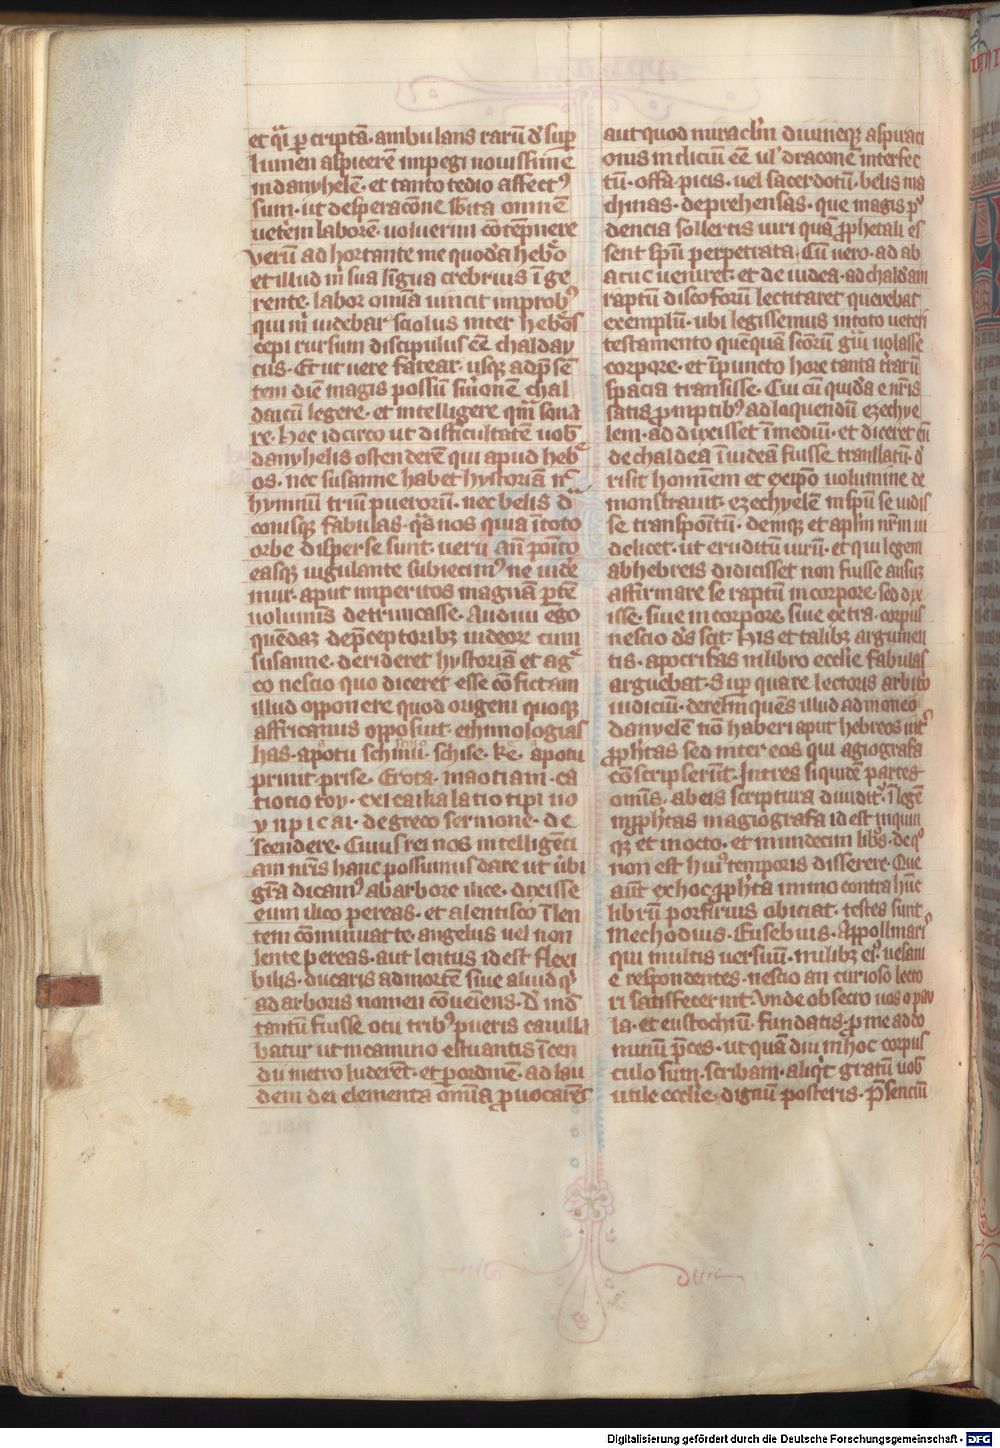 et q̄i p̄ criptā· ambulans rarū d̄ sup̄
lumen aspicerē impegi nouissime
in danyhelē· et tanto tedio affectꝰ
sum· ut desperacōne sb̄ita omnē
ueterē laborē· uoluerim cōtēpnere
verū ad hortante me quodā hebꝛo
et illud m̄ sua lingua crebrius īge
rente· labor omīa uincit improbꝰ
qui m̄ uidebar sciolus inter hebꝛos
cepi rursum discipulus ēē chalday
cus· Et ut uere fatear· usqꝫ ad p̄sē
tem diē magis possū sm̄onē chal
daicū legere· et intelligere qm̄ sona
re· Hec idcirco ut difficultatē uob̄
danyhelis ostenderē qui apud heb̄
os· nec susanne habet hystoriā nc̄
hymnū triū puerorū· nec belis d̄
conisqꝫ fabulas· q̄s nos quia ī toto
orbe disperse sunt· ueru an̄ posito
easqꝫ iugulante subiecimꝰ ne uide
mur· aput imperitos magnā p̄tē
uoluminis detruncasse· Audiui ego
quēdaꝫ dep̄ceptoribꝫ iudeoꝝ cum
susanne· derideret hystoriā et a ḡ
co nescio quo diceret esse cōfictam
illud opponere quod origeni quoqꝫ
affricanus opposuit· ethimologias
has· apotu schinu· schise· ke apotu
prinu prise· Erota· maotiam· ca
tiotio toy· exicaika latio tipi no
ynpicai· de greco sermone· de
scendere· Cuius rei nos intelligēci
am nr̄is hanc possumus dare ut ūbi
gr̄a dicamꝰ ab arbore ilice· dixisse
eum ilico pereas· et a lentisco ī len
tem cōminuat te· angelus uel non
lente pereas· aut lentus id est flexi
bilis· ducaris ad mortem siue aliud q̄
ad arboris nomen cōueniens· D̄ind̄
tantū fuisse ocii tribꝰ pueris cauilla
batur ut in camino estuantis īcen
dii metro luderēt· et per ordinē· ad lau
dem dei elementa omīa ꝓuocarēt
aut quod miraclm̄ diuineqꝫ aspiraci
onis indiciū ēē ul̓ draconē interfec
tū· offa picis· uel sacerdotū· belis ma
chinas· deprehensas· que magis p̄
dencia sollertis uiri quā ꝓphetali es
sent sp̄u perpetrata· Cū uero· ad ab
acuc ueniret· et de iudea· ad chaldeam
raptū discoforū lectitaret querebat
exemplū· ubi legissemus in toto ueteri
testamento quēquā scōrum gui uolasse
corpore· et īpuncto hore tanta t̄rarū
spacia transisse· Cui cū quidā e nr̄is
satis ꝓmptibꝰ ad loquendū ezechye
lem· ad duxisset ī mediū· et diceret eū
de chaldea ī iudeā fuisse translatū· d̄
risit hominem et ex ip̄o uolumine de
monstrauit· ezechyelem in sp̄u se uidis
se transpositū· deniqꝫ et aplm̄ nr̄m ui
delicet· ut eruditū uirū· et qui legem
ab hebreis didicisset non fuisse ausuꝫ
affirmare se raptū in corpore· sed dix
isse· siue in corpore· siue extra· corpus
nescio d̄s scit· His et talibꝫ argumen
tis· apocrifas in libro ecclīe fabulas
arguebat· Sup̄ qua re lectoris arbitrio
iudiciū· derelinquēs illud ad moneo
danyelē nō haberi aput hebreos int̄
ꝓphetas sed inter eos qui agiografa
cōscripserūt· In tres siquidē partes
omīs· ab eis scriptura diuiditꝰ· ī legē
in ꝓphetas in agiografa id est in quin
qꝫ et in octo· et in undecim libꝛos· de q̄
non est huiꝰ temporis disserere· Que
aūt ex hoc ꝓpheta immo contra hūc
librū porfirius obiciat· testes sunt
Methodius· Eusebius· Appollinariꝰ
qui multis uersuū· milibꝫ eiꝰ uesani
e respondentes· nescio an curioso lecto
ri satisfecerint· Vnde obsecro uos o pau
la· et eustochiū· fundatis ꝓ me ad do
minū p̄ces· ut quā diu in hoc corpus
culo sum· scribam· aliqꝫt gratū uob̄
utile ecclīe· dignū posteris· P̄senciū
Digitalisierung gefördert durch die Deutsche Forschungsgemeinschaft - DFG